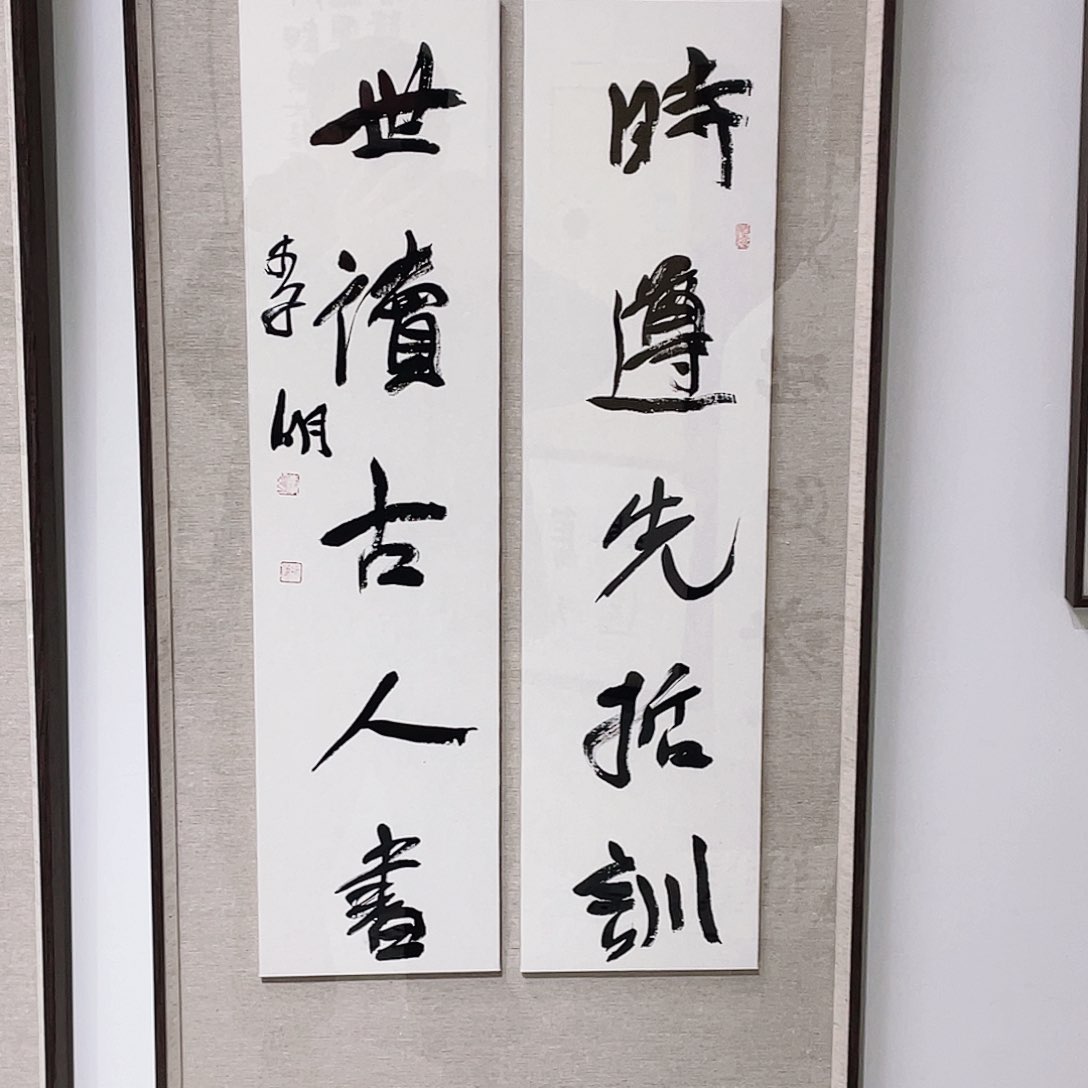 時遵先哲訓
世讀古人書
李明